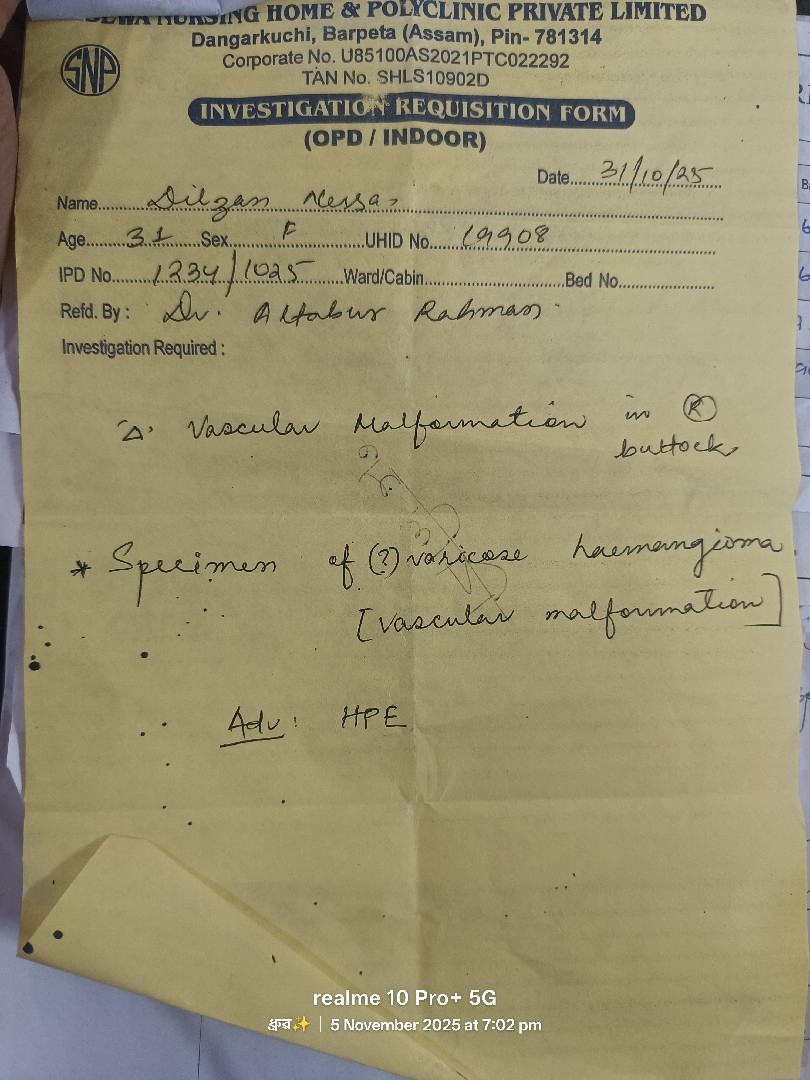 SEWA NURSING HOME & POLYCLINIC PRIVATE LIMITED
Dangarkuchi, Barpeta (Assam), Pin- 781314
Corporate No. U85100AS2021PTC022292
TAN No. SHLS10902D
SNP
INVESTIGATION REQUISITION FORM
(OPD / INDOOR)
Date 31/10/25
Name Dilzan Nessa
Age 31 Sex F UHID No. 19908
IPD No. 1234/1025 Ward/Cabin Bed No.
Refd. By : Dr. Altabur Rahman
Investigation Required :
Δ. Vascular Malformation in (R)
buttock
* Specimen of (?) varicose haemangioma
[Vascular malformation]
Adv: HPE
realme 10 Pro+ 5G
ধ্রুৱ✨ | 5 November 2025 at 7:02 pm